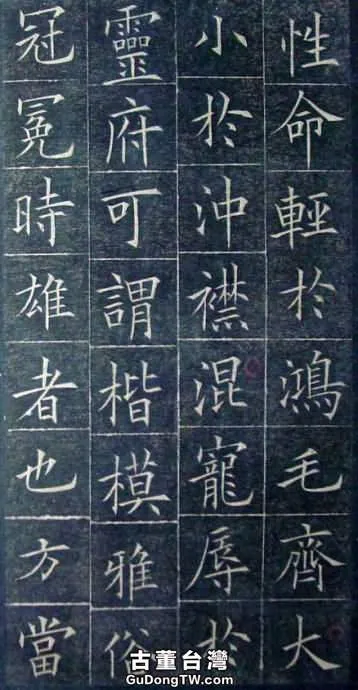 性命輕於鴻毛齊大
小於沖襟混寵辱於
靈府可謂楷模雅俗
冠冕時雄者也方當
古董台灣
GuDongTW.com